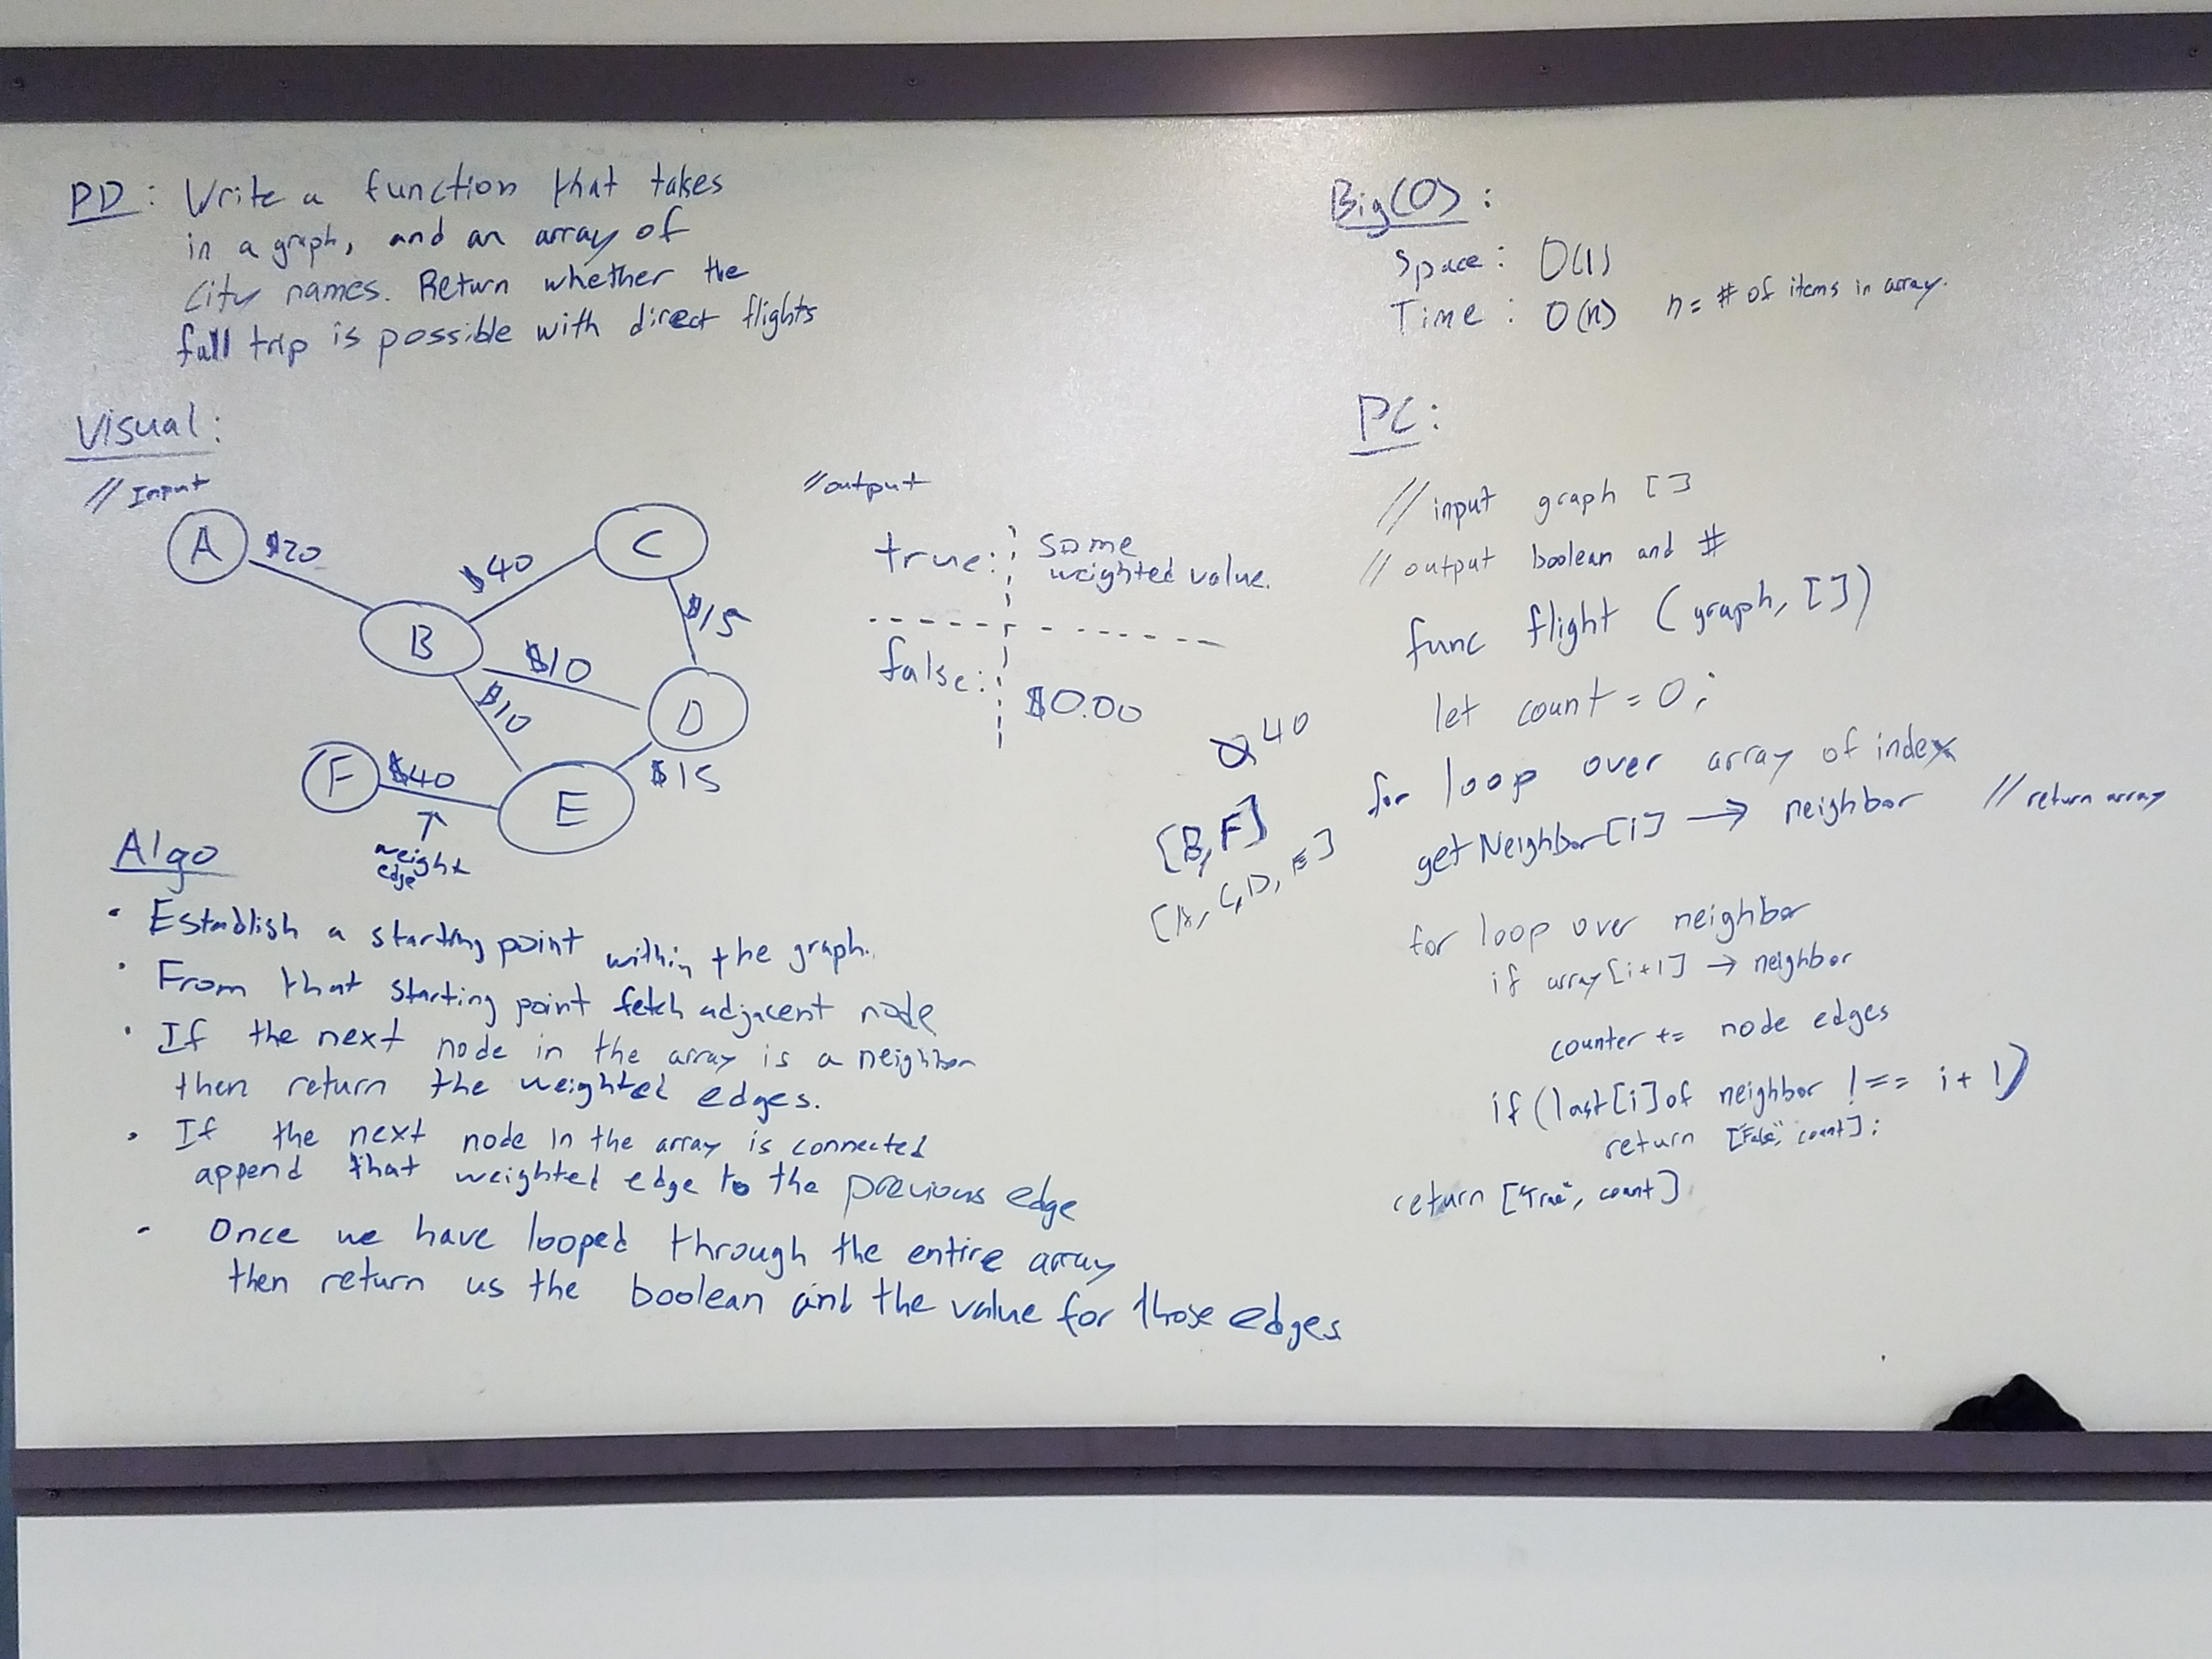 PD: Write a function that takes
in a graph, and an array of
city names. Return whether the
full trip is possible with direct flights
Visual:
// Input
A
$20
B
$40
C
$15
$10
D
$10
F
$40
E
$15
↑
weight
edge
//output
true:
some
weighted value.
false:
$0.00
Algo
• Establish a starting point within the graph.
• From that starting point fetch adjacent node
• If the next node in the array is a neighbor
then return the weighted edges.
• If the next node in the array is connected
append that weighted edge to the previous edge
- Once we have looped through the entire array
then return us the boolean and the value for those edges
40
[B, F]
[A, C, D, E]
Big(O):
Space: O(1)
Time: O(n) n= # of items in array.
PC:
// input graph []
// output boolean and #
func flight (graph, [])
let count = 0;
for loop over array of index
getNeighbor[i] → neighbor // return array
for loop over neighbor
if array[i+1] → neighbor
counter += node edges
if (last[i] of neighbor !== i+1)
return ["False", count];
return ["True", count]